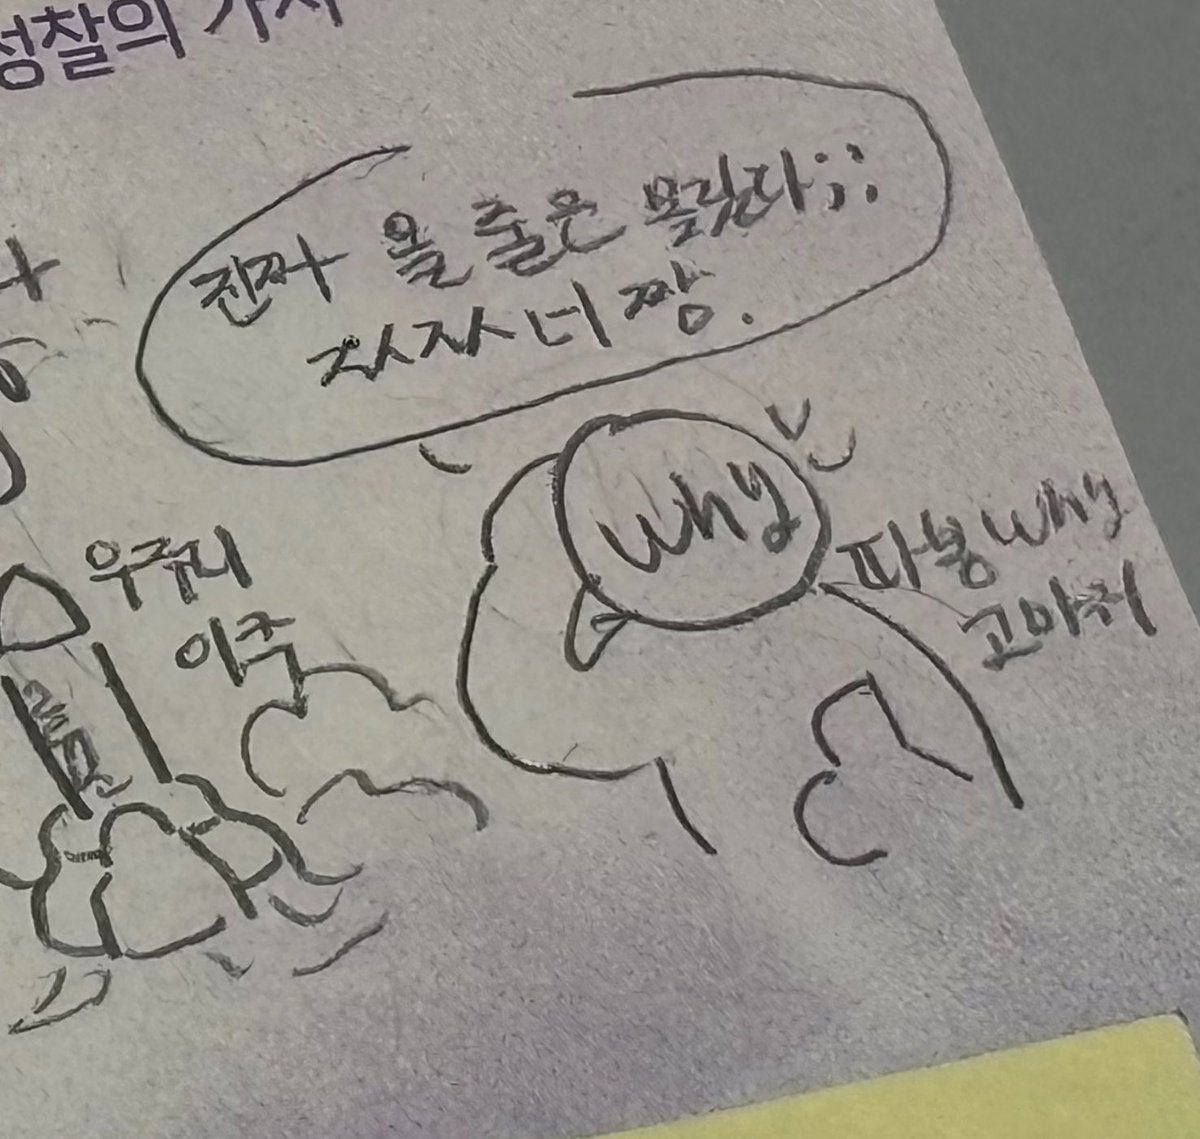 성찰의 가치
진짜 올 줄은 몰랐다;;
자자 너 짱.
why
파봉 why
고마워
우주리
이주